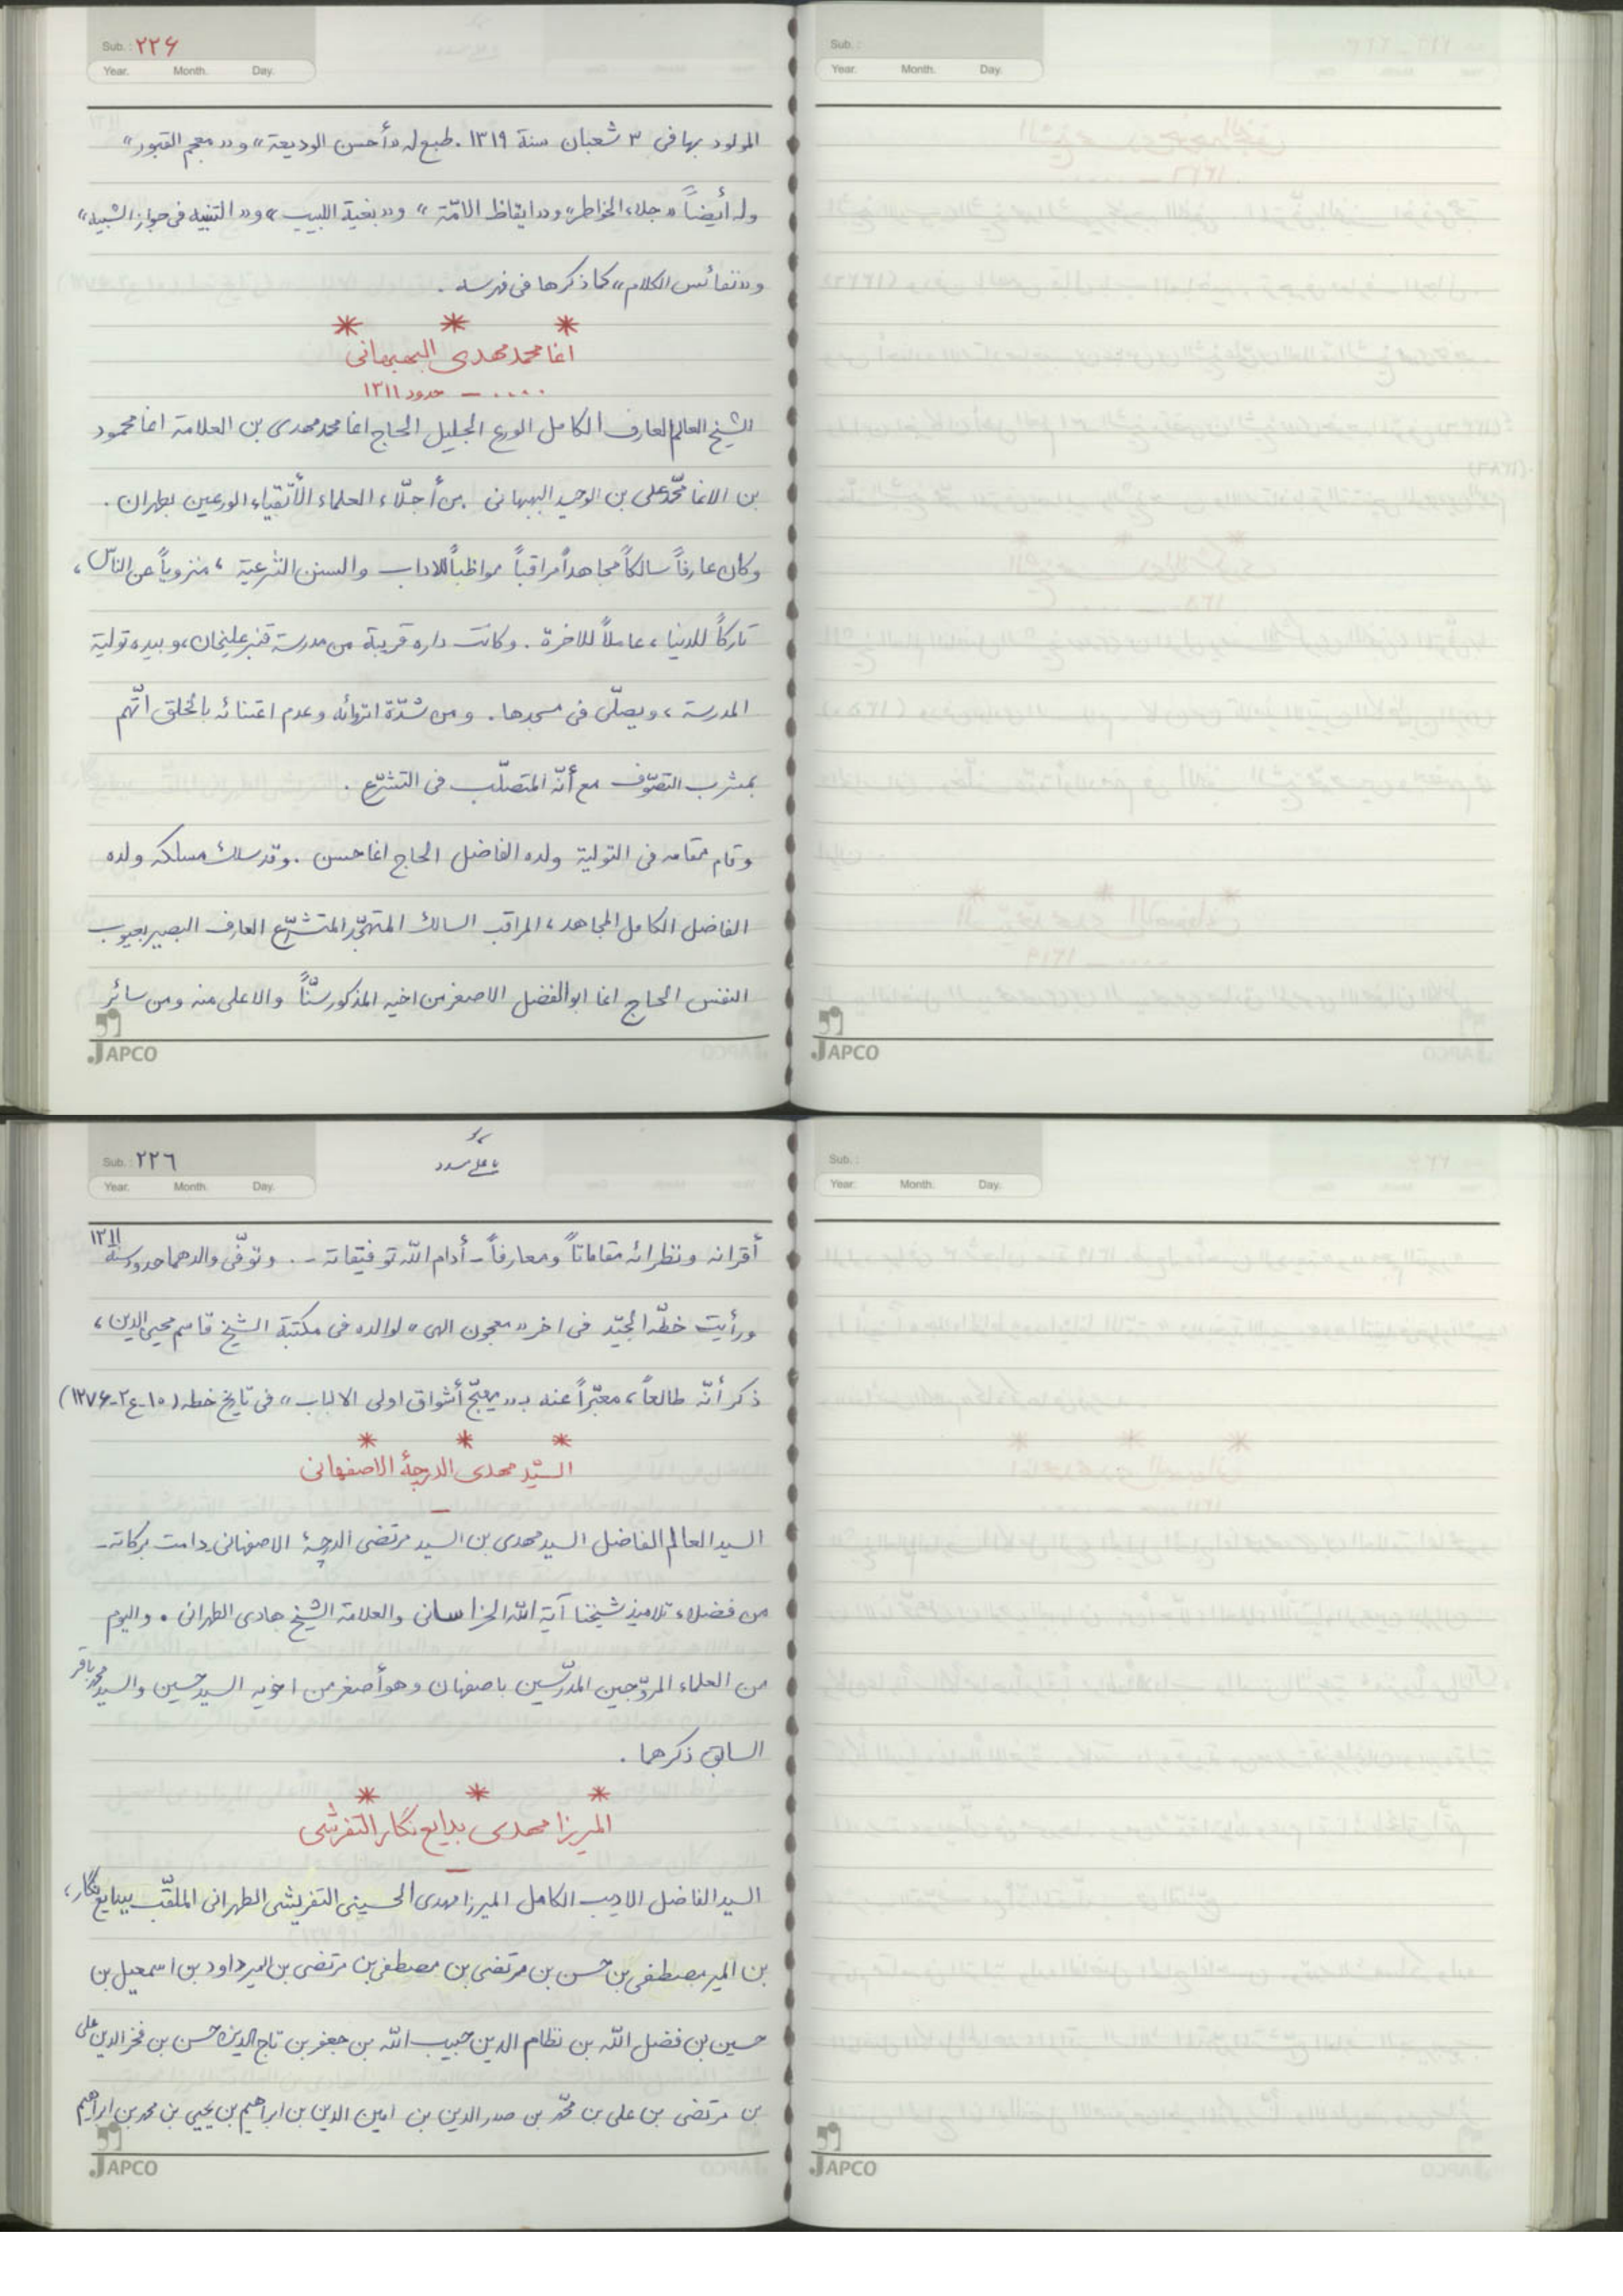 Sub.: ۲۲۶
Year. Month. Day.
المولود بها فى ۳ شعبان سنة ۱۳۱۹. طبع له «أحسن الوديعة» و«معجم القبور»
وله أيضاً «جلاء الخواطر» و«ايقاظ الامّة» و«بغية اللبيب» و«التنبيه فى جواز الشبيه»
و«نفائس الكلام» كما ذكرها فى فهرسه.
* * *
اغا محمد مهدى البهبهانى
.... — حدود ۱۳۱۱
الشيخ العالم العارف الكامل الورع الجليل الحاج اغا محمد مهدى بن العلامة اغا محمود
بن الاغا محمّد على بن الوحيد البهبهانى. من أجلّاء العلماء الأتقياء الورعين بطهران.
وكان عارفاً سالكاً مجاهداً مراقباً مواظباً للاداب والسنن الشرعية، منزوياً عن الناس،
تاركاً للدنيا، عاملاً للاخرة. وكانت داره قريبة من مدرسة قنبر عليخان، وبيده تولية
المدرسة، ويصلّى فى مسجدها. ومن شدّة انزوائه وعدم اعتنائه بالخلق اتّهم
بمشرب التصوّف مع أنّه المتصلّب فى التشرّع.
وقام مقامه فى التولية ولده الفاضل الحاج اغا حسن. وقد سلك مسلكه ولده
الفاضل الكامل المجاهد، المراقب السالك المتهجّد المتشرّع العارف البصير بعيوب
النفس الحاج اغا ابو الفضل الاصغر من اخيه المذكور سنّاً والاعلى منه ومن سائر
JAPCO
Sub.:
Year. Month. Day.
JAPCO
Sub.: ۲۲٦
Year. Month. Day.
يا على مدد
أقرانه ونظرائه مقاماتاً ومعارفاً ـ أدام الله توفيقاته ـ. وتوفّى والدهما حدود سنة ۱۳۱۱
ورأيت خطّه الجيّد فى اخر «معجون الهى» لوالده فى مكتبة الشيخ قاسم محيى الدين،
ذكر أنّه طالعاً، معبّراً عنه بـ«مهيّج أشواق اولى الالباب» فى تاريخ خطه (۱۰ـ ع۲ـ ۱۲۷۶)
* * *
السيّد مهدى الدرچهٔ الاصفهانى
—
السيد العالم الفاضل السيد مهدى بن السيد مرتضى الدرچهٔ الاصفهانى ـ دامت بركاته ـ
من فضلاء تلاميذ شيخنا آية الله الخراسانى والعلامة الشيخ هادى الطهرانى. واليوم
من العلماء المروّجين المدرّسين باصفهان وهو أصغر من اخويه السيد حسين والسيد محمد باقر
السابق ذكرهما.
* * *
الميرزا مهدى بدايع نگار التفرشى
—
السيد الفاضل الاديب الكامل الميرزا مهدى الحسينى التفريشى الطهرانى الملقّب ببدايع نگار،
بن المير مصطفى بن حسن بن مرتضى بن مصطفى بن مرتضى بن المير داود بن اسمعيل بن
حسين بن فضل الله بن نظام الدين حبيب الله بن جعفر بن تاج الدين حسن بن فخر الدين على
بن مرتضى بن على بن محمّد بن صدر الدين بن امين الدين بن ابراهيم بن يحيى بن محمد بن ابراهيم
JAPCO
Sub.:
Year. Month. Day.
JAPCO